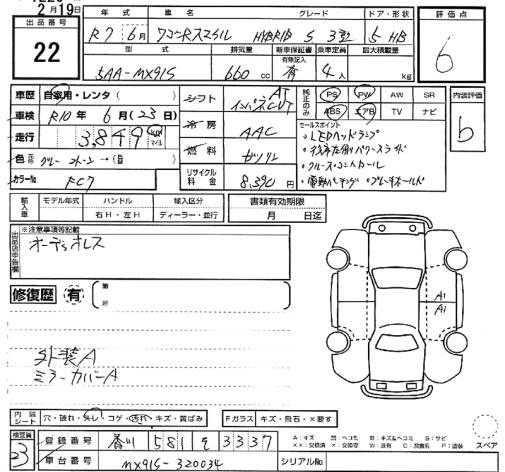 2月19日
出品番号
22
年式 車名 グレード ドア・形状
R7 6月 ワゴンRスマイル HYBRID S 3型 5 HB
型式 排気量 新車保証書 乗車定員 最大積載量
有無記入
5AA-MX91S 660 cc 有 4人 kg
評価点
6
車歴 自家用・レンタ( )
車検 R10年 6月(23日)
走行 3,849 km マイル
色 元色
カラーNo FC7
シフト AT インパネCVT
冷房 AAC
燃料 ガソリン
リサイクル料金 8,390円
純正のみ
PS PW AW SR
ABS エアB TV ナビ
セールスポイント
・LEDヘッドランプ
・クルーズコントロール
内装評価
b
輸入車 モデル年式 ハンドル 輸入区分
右H・左H ディーラー・並行
書類有効期限
月 日迄
出品店申告欄
※注意事項等記載
オーディオレス
修復歴 有 箇所
外装A
ミラーカバーA
A1
A1
内装シート 穴・破れ・スレ・コゲ・汚れ・キズ・黄ばみ
Fガラス キズ・飛石・×要す
検査員
23
登録番号 香川 581 を 3337
車台番号 MX91S-320034
シリアルNo
A:キズ U:ヘコミ B:キズ&ヘコミ S:サビ
スペア